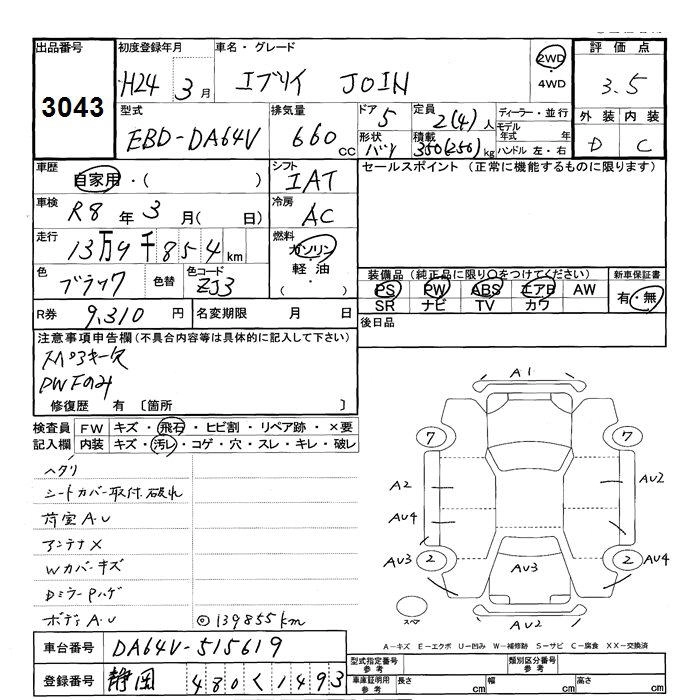 出品番号
3043
初度登録年月
H24 3月
車名・グレード
エブリイ JOIN
2WD
・
4WD
評価点
3.5
外装 内装
D C
型式
EBD-DA64V
排気量
660 cc
ドア 5
形状 バン
定員 2(4)人
積載 350(250)kg
ディーラー・並行
モデル年式 年
ハンドル 左・右
車歴
自家用・( )
シフト
IAT
セールスポイント (正常に機能するものに限ります)
車検
R8年 3月( 日)
冷房
AC
走行
13万9千854km
燃料
ガソリン
軽・油
・
( )
色
ブラック
色替
色コード
ZJ3
装備品 (純正品に限り○をつけてください)
PS PW ABS エアB AW
SR ナビ TV カワ
新車保証書
有・無
R券 9,310円
名変期限 月 日
後日品
注意事項申告欄(不具合内容等は具体的に記入して下さい)
PWFのみ
修復歴 有 〔箇所 〕
検査員 FW キズ・飛石・ヒビ割・リペア跡・×要
記入欄 内装 キズ・汚レ・コゲ・穴・スレ・キレ・破レ
ヘタリ
シートカバー取付.破れ
荷室A.U
アンテナX
Wカバーキズ
DミラーPハゲ
ボディA.U
◎139855km
A1
7 7
A2 AU2
AU4
AU3 2 AU3 2 AU4
スペア
AU2
A−キズ E−エクボ U−凹み W−補修跡 S−サビ C−腐食 XX−交換済
車台番号 DA64V-515619
登録番号 静岡 480く1493
型式指定番号 参考
類別区分番号 参考
車庫証明用 参考
長さ cm 幅 cm 高さ cm